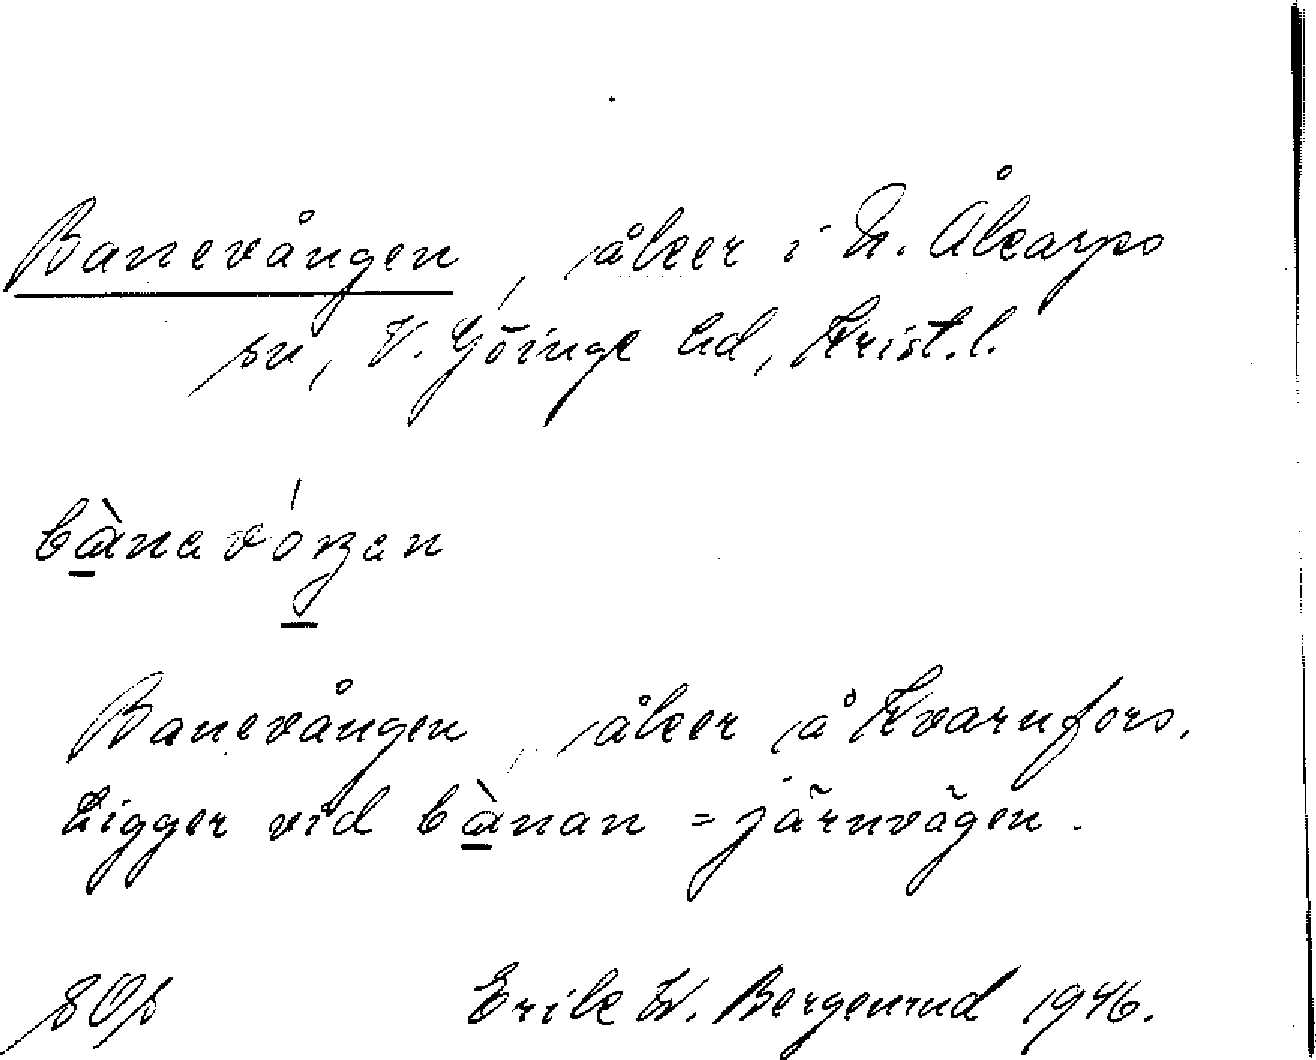 Banevången, åker i N. Åkarps
sn, V. Göinge hd, Krist. l.
Banevången, åker å Kvarnfors.
Ligger vid bànan = järnvägen.
Erik W. Bergenrud 1946.